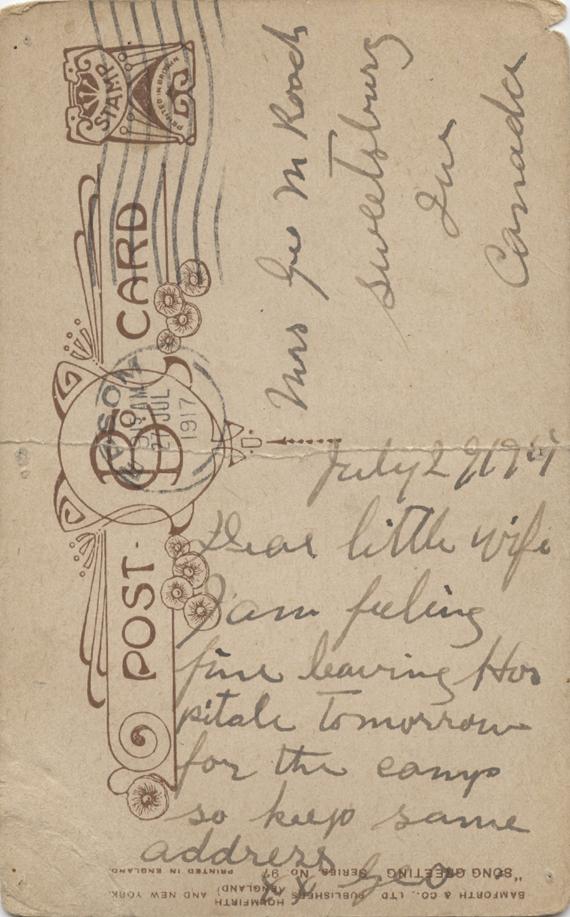 POST CARD
STAMP
PRINTED IN BRITAIN
B
9.15 AM
JUL
1917
Mrs Geo M Roach
Sweetsburg
Que
Canada
Dear little wife
I am feeling
fine leaving Hos
pitale tomorrow
for the camp
so keep same
address
x x Geo
BAMFORTH & CO., LTD PUBLISHERS HOLMFIRTH (ENGLAND) AND NEW YORK
"SONG GREETING" SERIES, No 97
PRINTED IN ENGLAND.